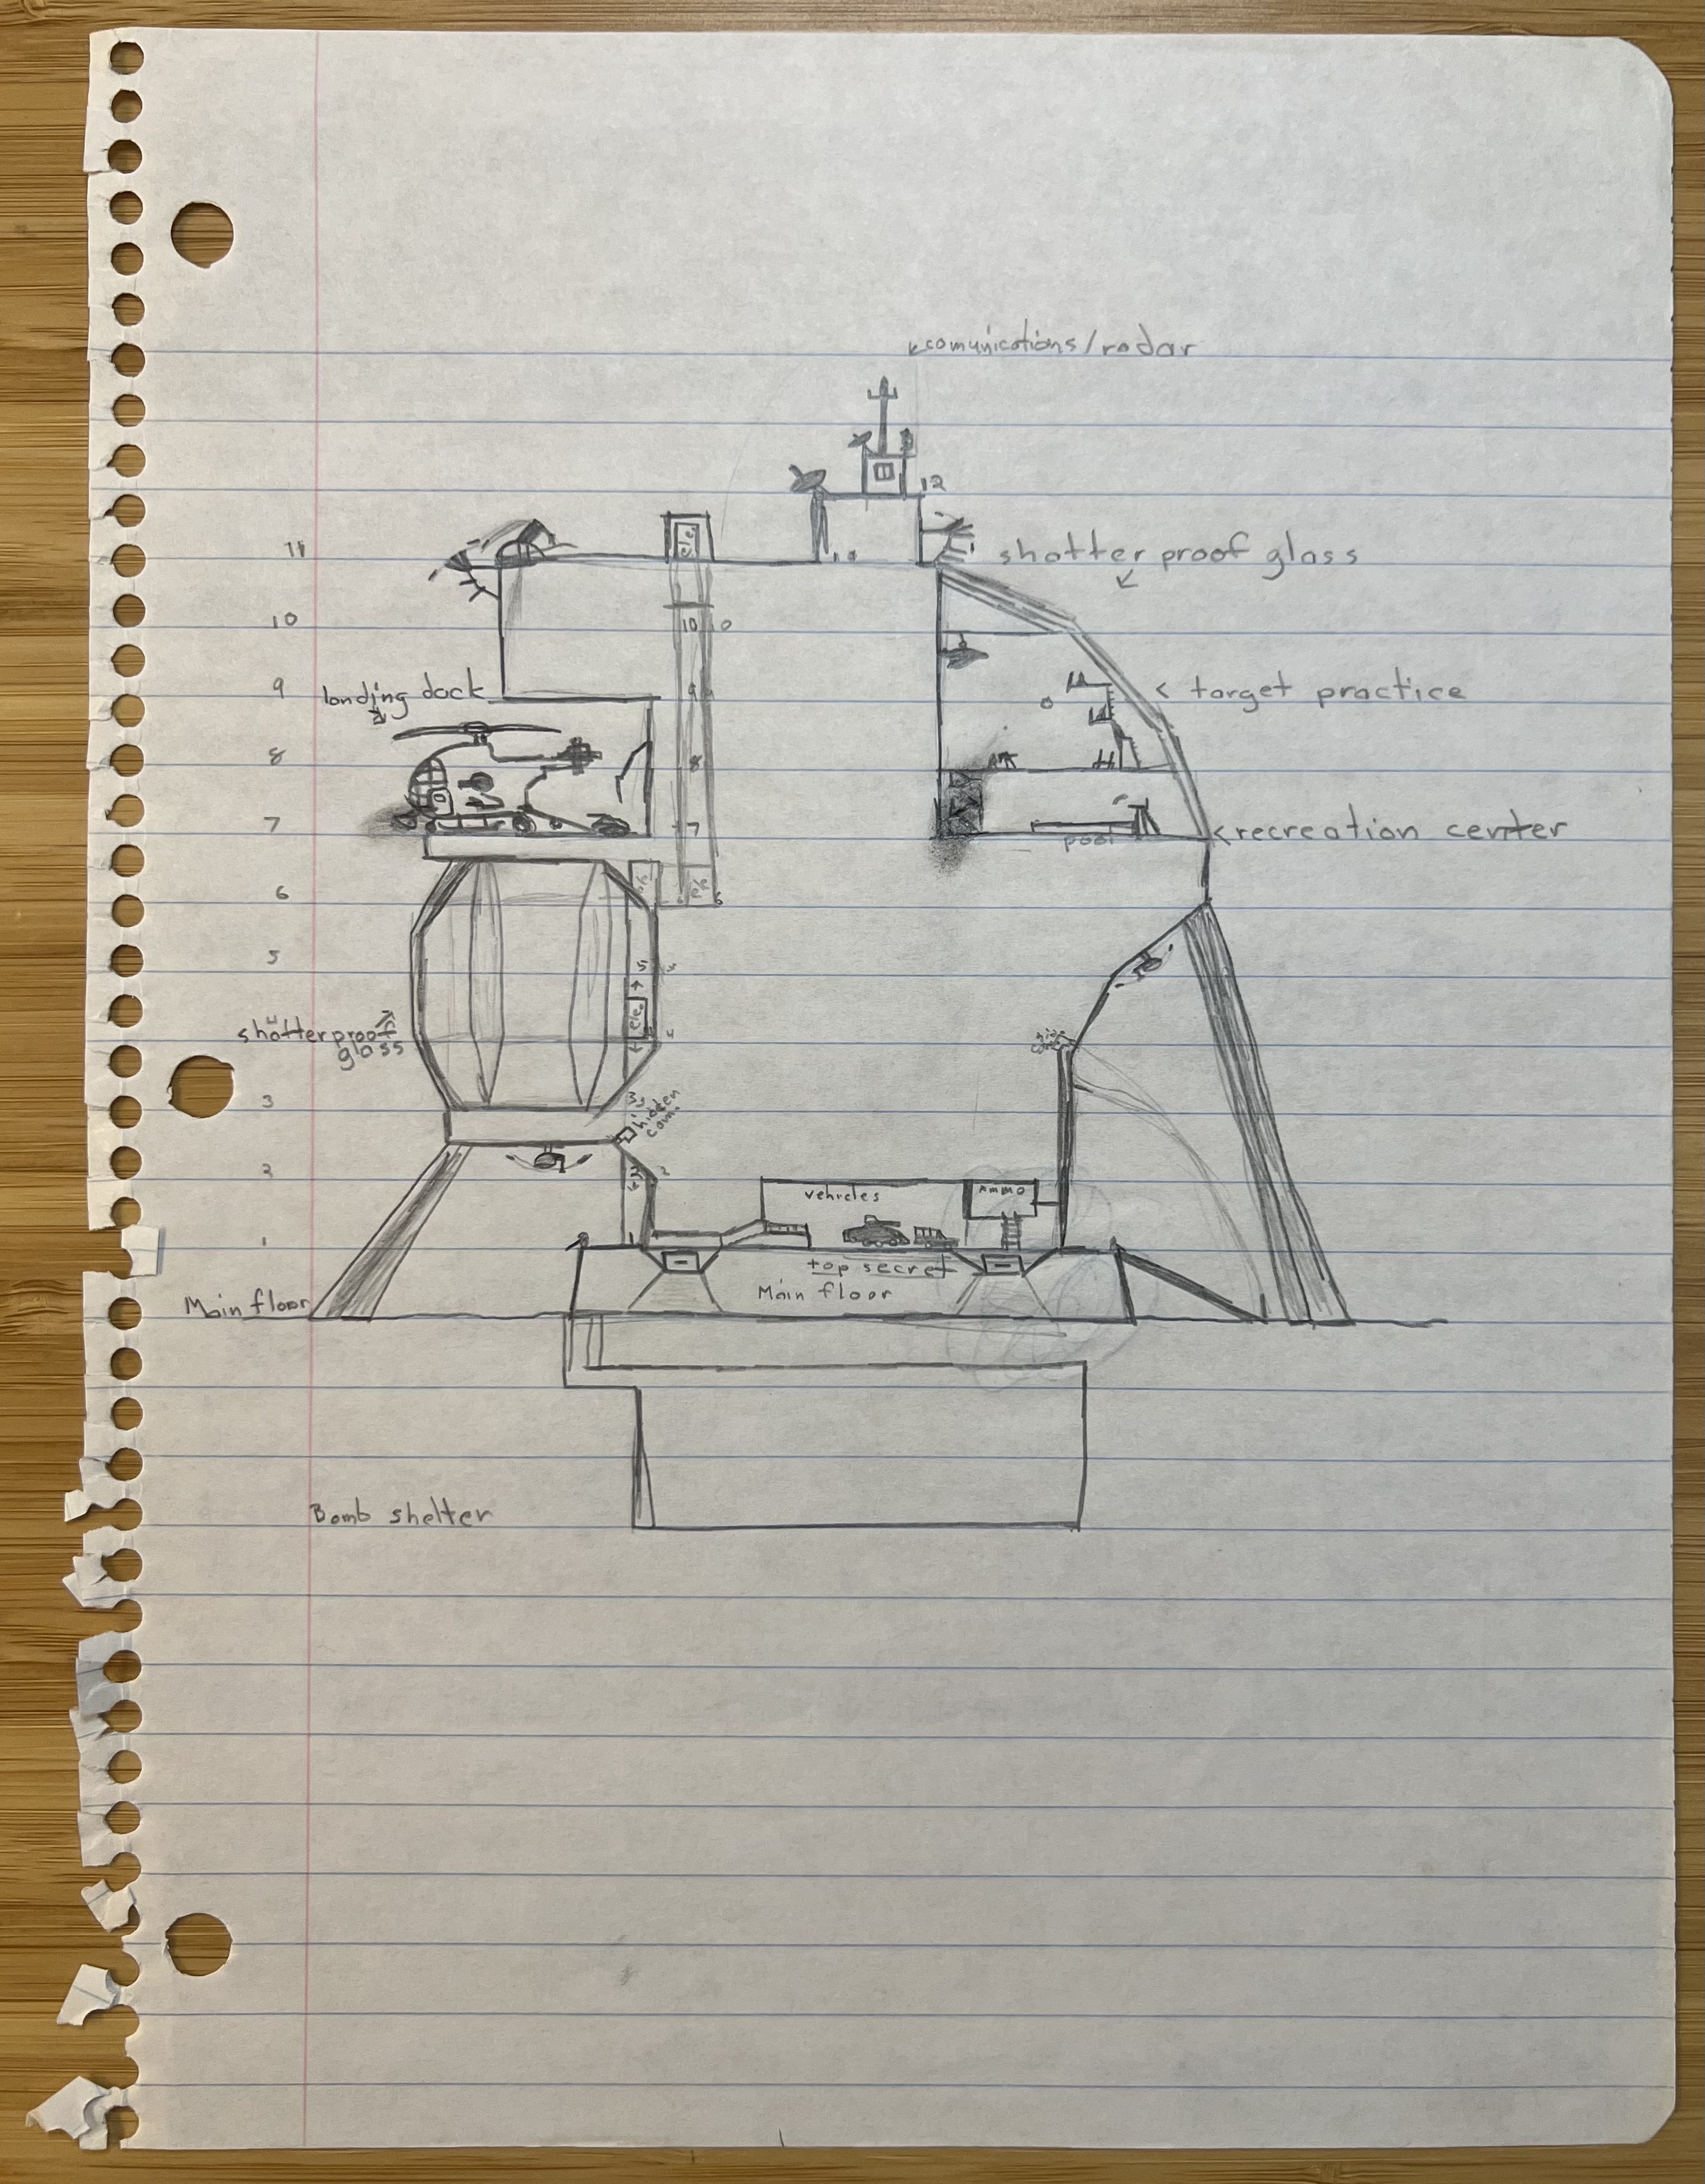 comunications/radar
12
ele
11
shatter proof glass
10
10
9
landing dock
9
target practice
8
8
7
7
recreation center
pool
6
ele
6
5
5
ele
4
shatterproof
glass
3
3
hidden
cam.
2
2
vehicles
Ammo
1
1
top secret
Main floor
Main floor
Bomb shelter